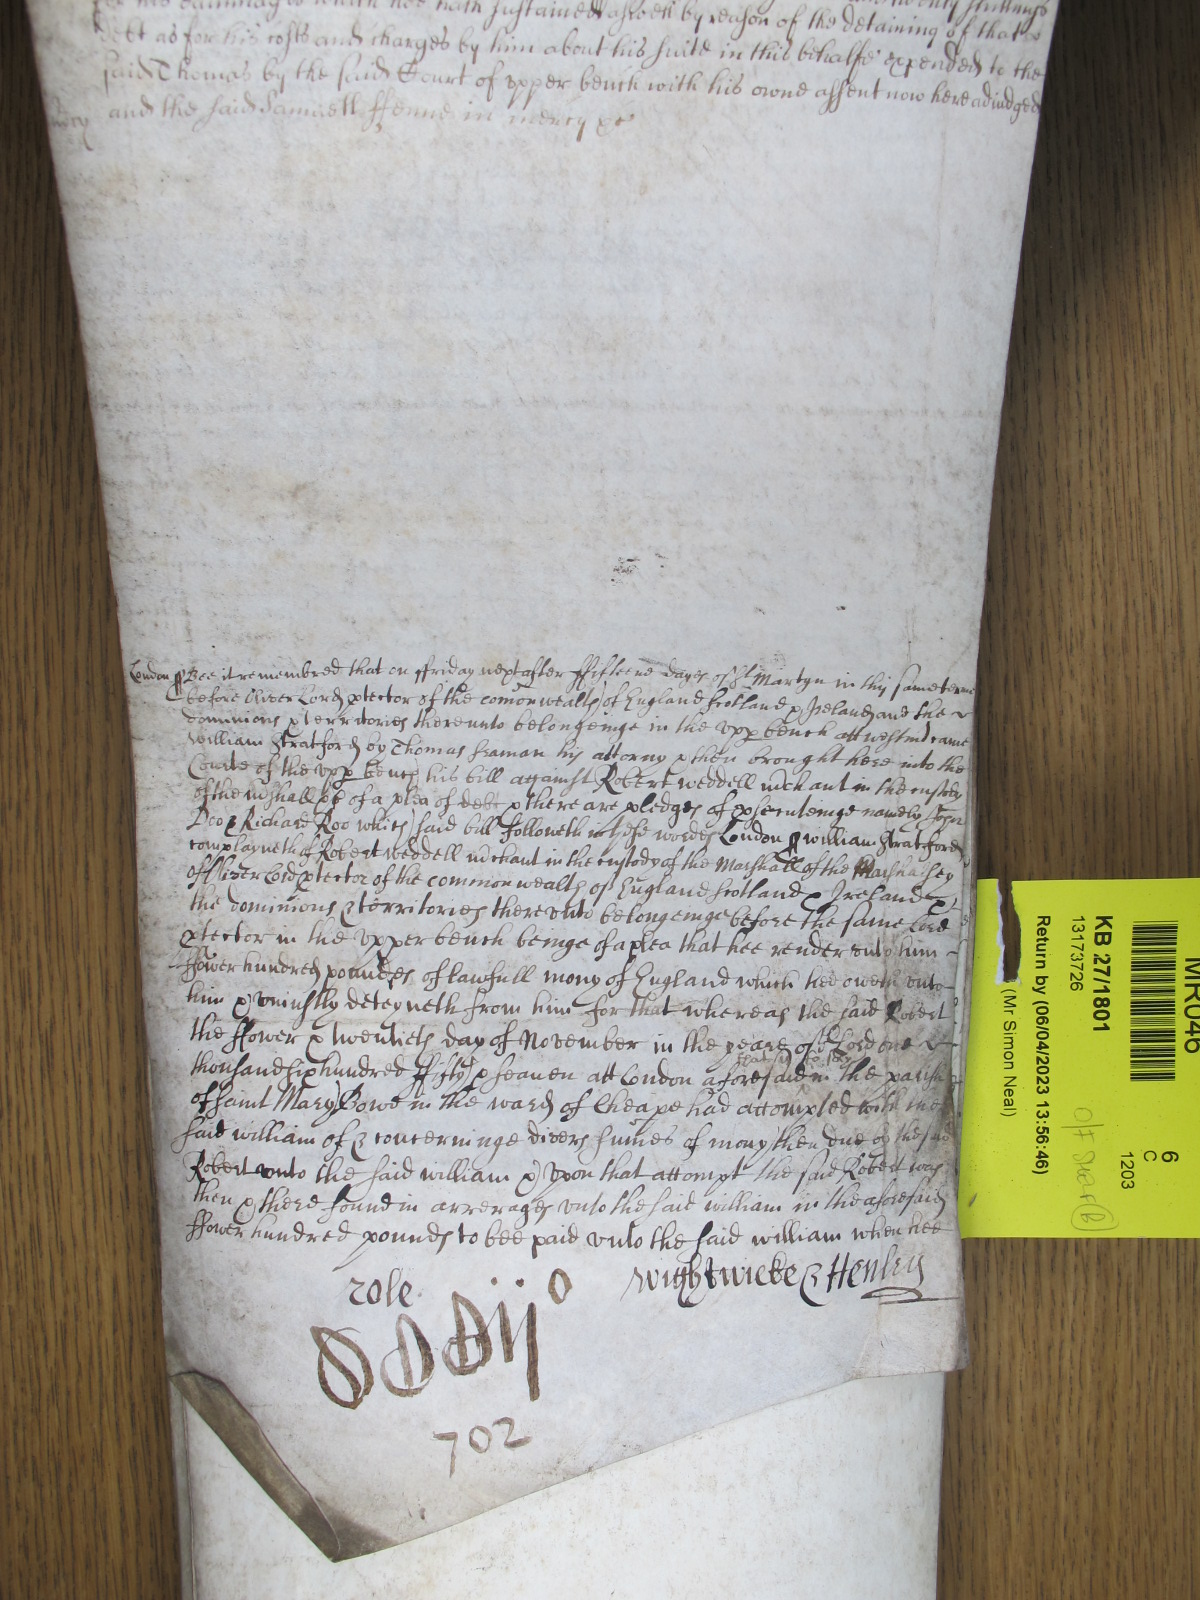 for his dammages which hee hath sustained aswell by reason of the detaining of that
debt as for his costs and charges by him about his suite in this behalfe expended to the
said Thomas by the said Court of upper bench with his owne assent now here adiudged
and the said Samuell ffenne in mercy &c
London ss Bee it remembred that on ffriday next after ffifteene dayes of St Martyn in this same terme
before Oliver Lord ptector of the comonwealth of England Scotland & Ireland and the
dominions & territories thereunto belongeinge in the upp bench att westm came
William Stratford by Thomas Seaman his attorny & then brought here into the
Courte of the upp bench his bill against Robert weddell mchant in the custody
of the mshall &c of a plea of debt & there are pledges of psecuteinge namely John
Doo & Richard Roo which said bill followeth in these wordes London ss William Stratford
complayneth of Robert weddell mchant in the custody of the Marshall of the Marshalsey
of Oliver Lord ptector of the common wealth of England Scotland & Ireland &
the dominions & territories thereunto belongeinge before the same Lord
ptector in the upper bench beinge of a plea that hee render unto him
ffower hundred poundes of lawfull mony of England which hee oweth unto
him & uniustly deteyneth from him for that whereas the said Robert
the ffower & twentieth day of November in the yeare of or Lord one
thousand six hundred ffifty & seaven att London aforesaid that is to say in the parish
of Saint Mary Bowe in the ward of Cheape had accompted with the
said william of & concerninge divers sumes of mony then due by the said
Robert unto the said william & upon that accompt the said Robert was
then & there found in arrerages unto the said william in the aforesaid
ffower hundred pounds to bee paid unto the said william when hee
role
Wightwicke & Henley
702
MR046
KB 27/1801
13173726
Return by (06/04/2023 13:56:46)
(Mr Simon Neal)
6
C
1203